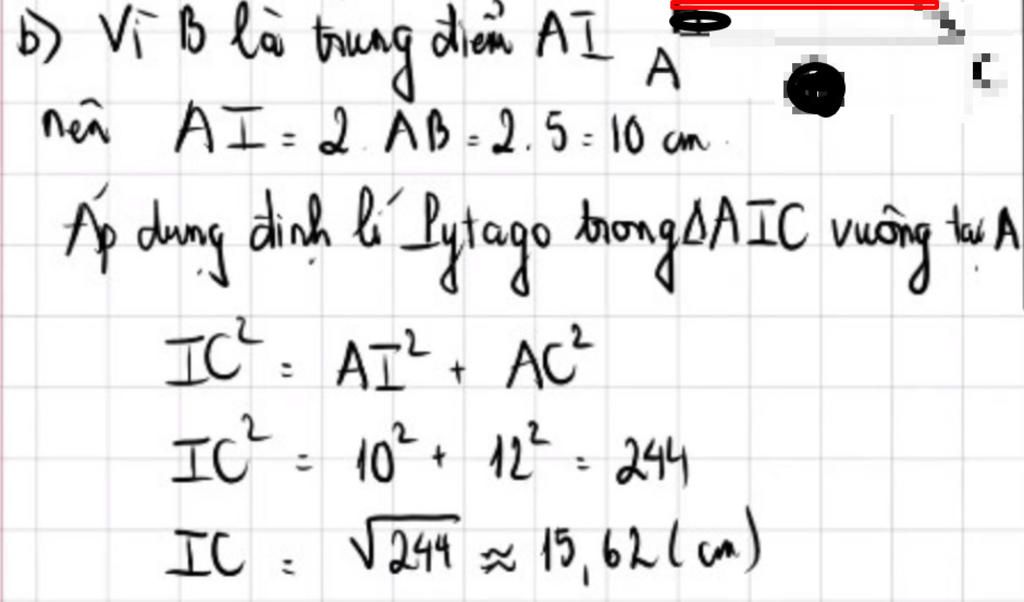 b) Vì B là trung điểm AI
A
C
nên AI = 2. AB = 2.5 = 10 cm.
Áp dụng định lí Pytago trong ΔAIC vuông tại A
IC² = AI² + AC²
IC² = 10² + 12² = 244
IC = √244 ≈ 15,62 (cm)